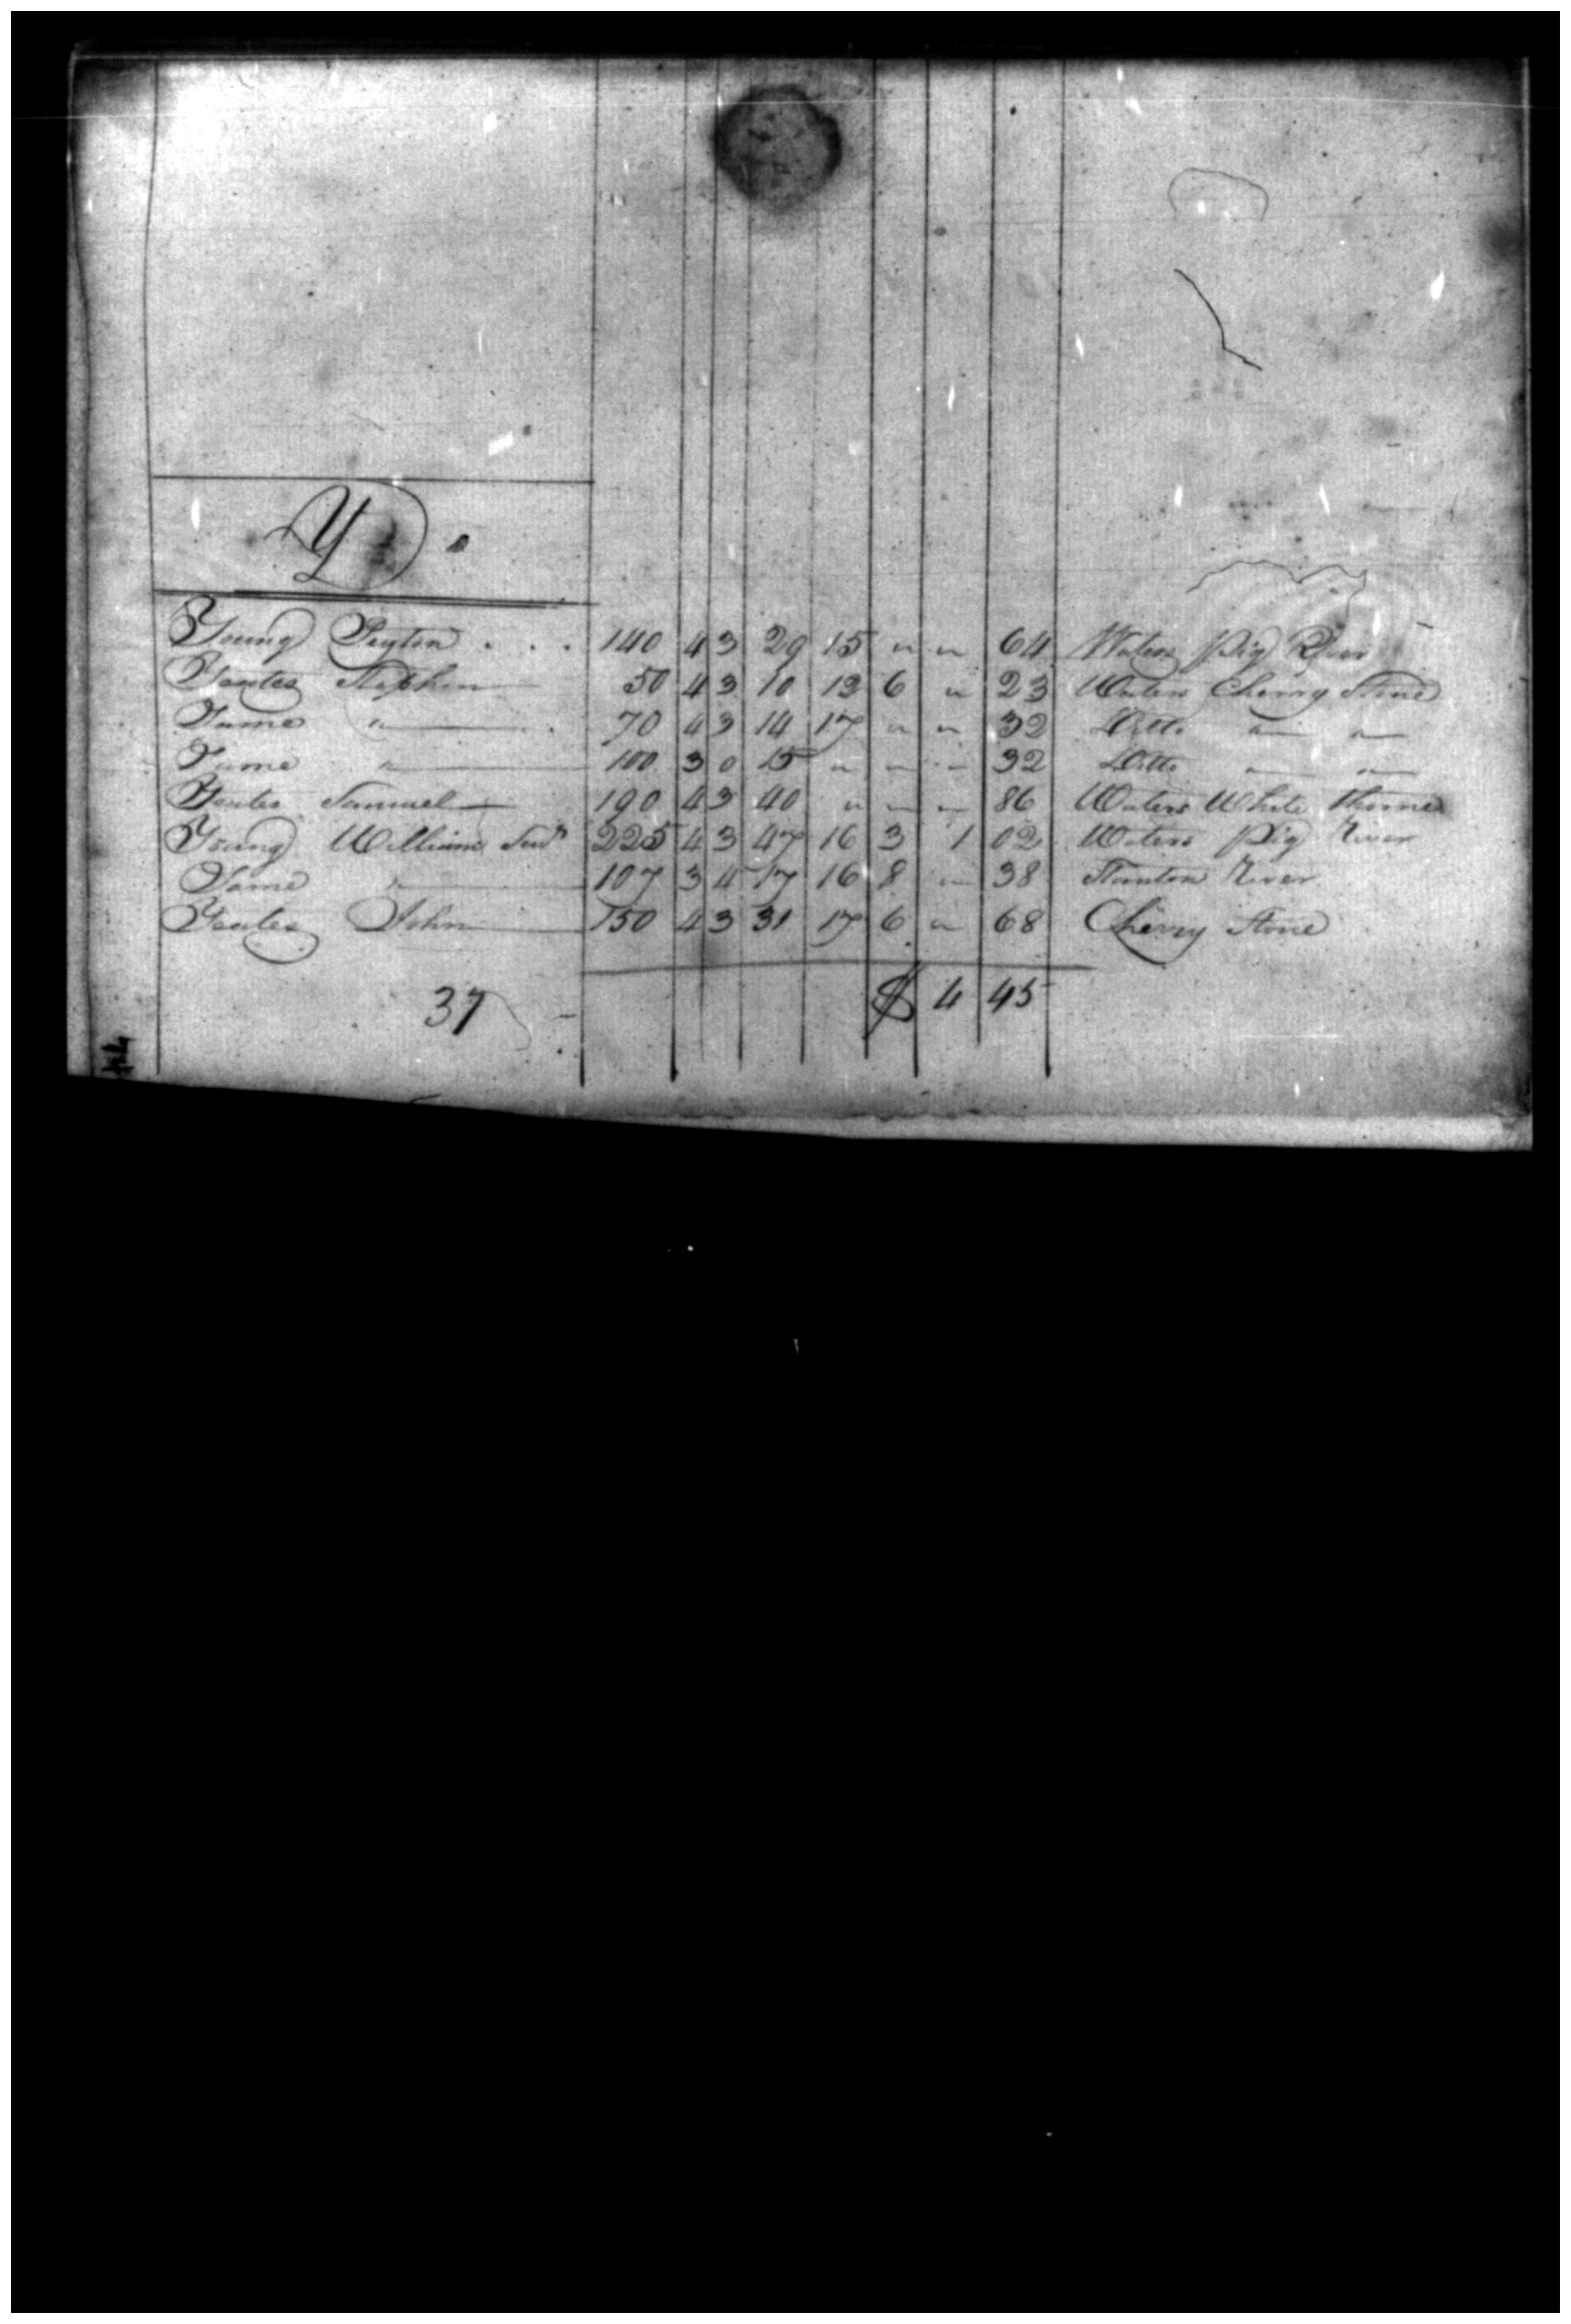 Y
Young Peyton . . . 140 4 3 29 15 " " 64 Waters Pig River
Yeates Stephen 50 4 3 10 12 6 " 23 Waters Cherry Stone
Same " 70 4 3 14 17 " " 32 Ditto " "
Same " 100 3 0 15 " " " 32 Ditto " "
Yeates Samuel 190 4 3 40 " " " 86 Waters White Thorne
Young William Senr 225 4 3 47 16 3 1 02 Waters Pig River
Same " 107 3 4 17 16 8 " 38 Staunton River
Yeates John 150 4 3 31 17 6 " 68 Cherry Stone
37 $ 4 45